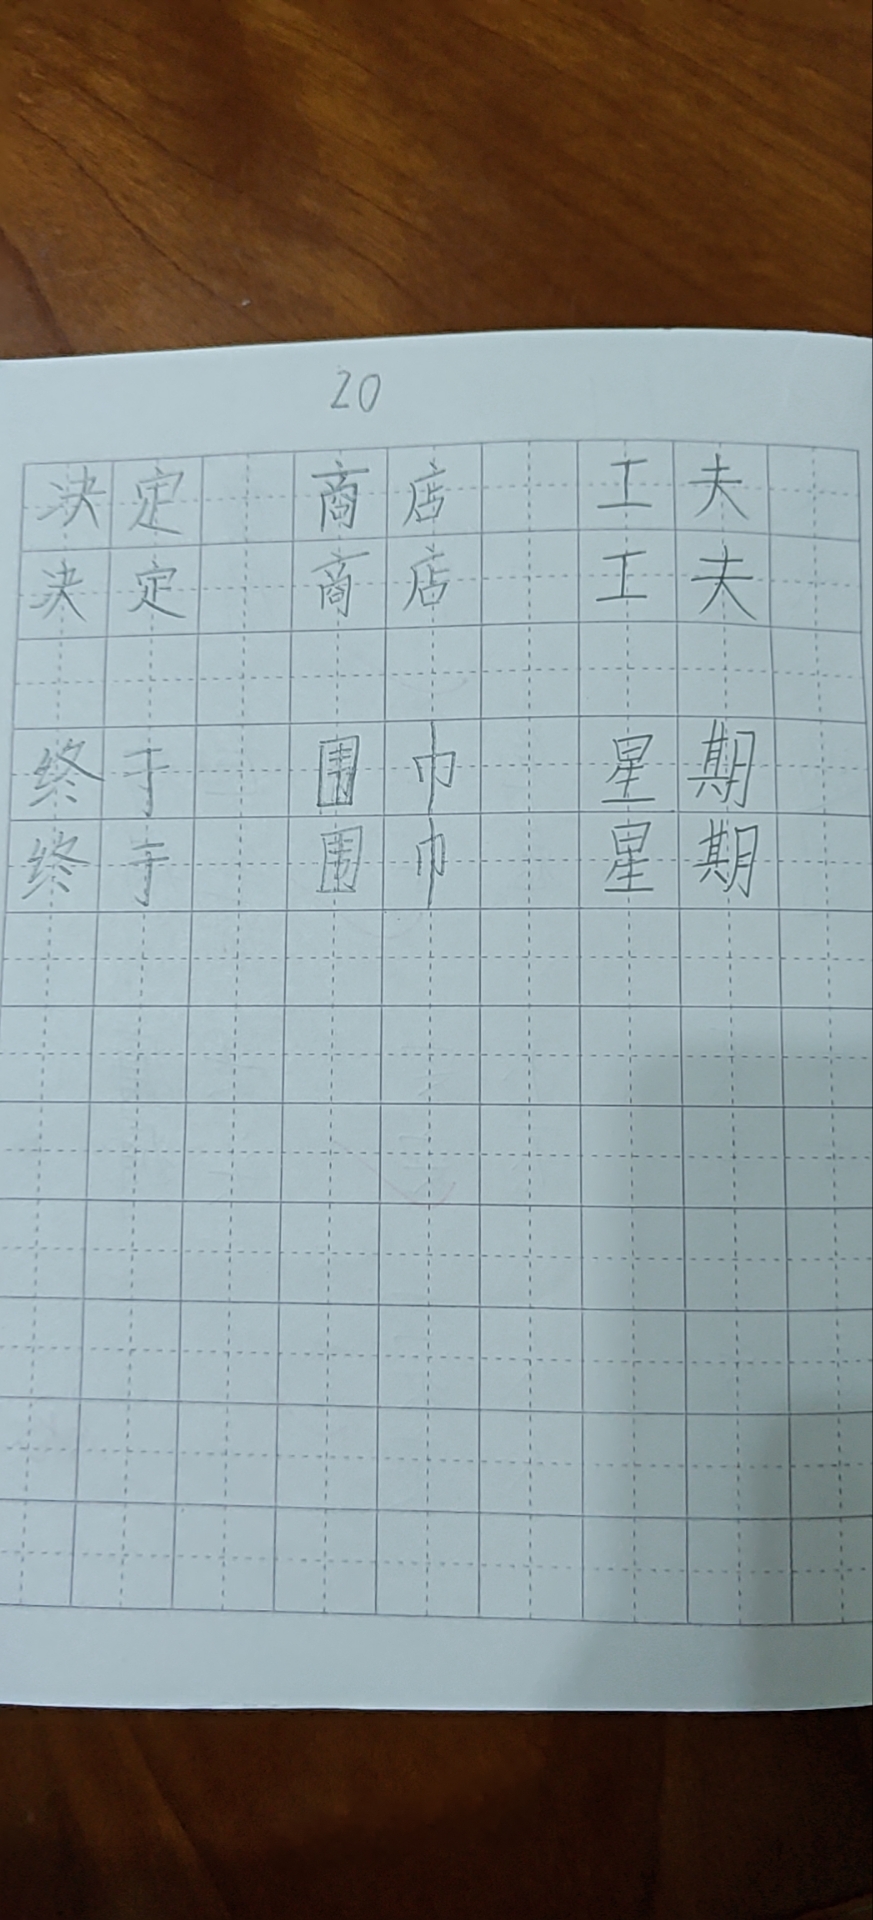 20
决定 商店 工夫
决定 商店 工夫
终于 围巾 星期
终于 围巾 星期